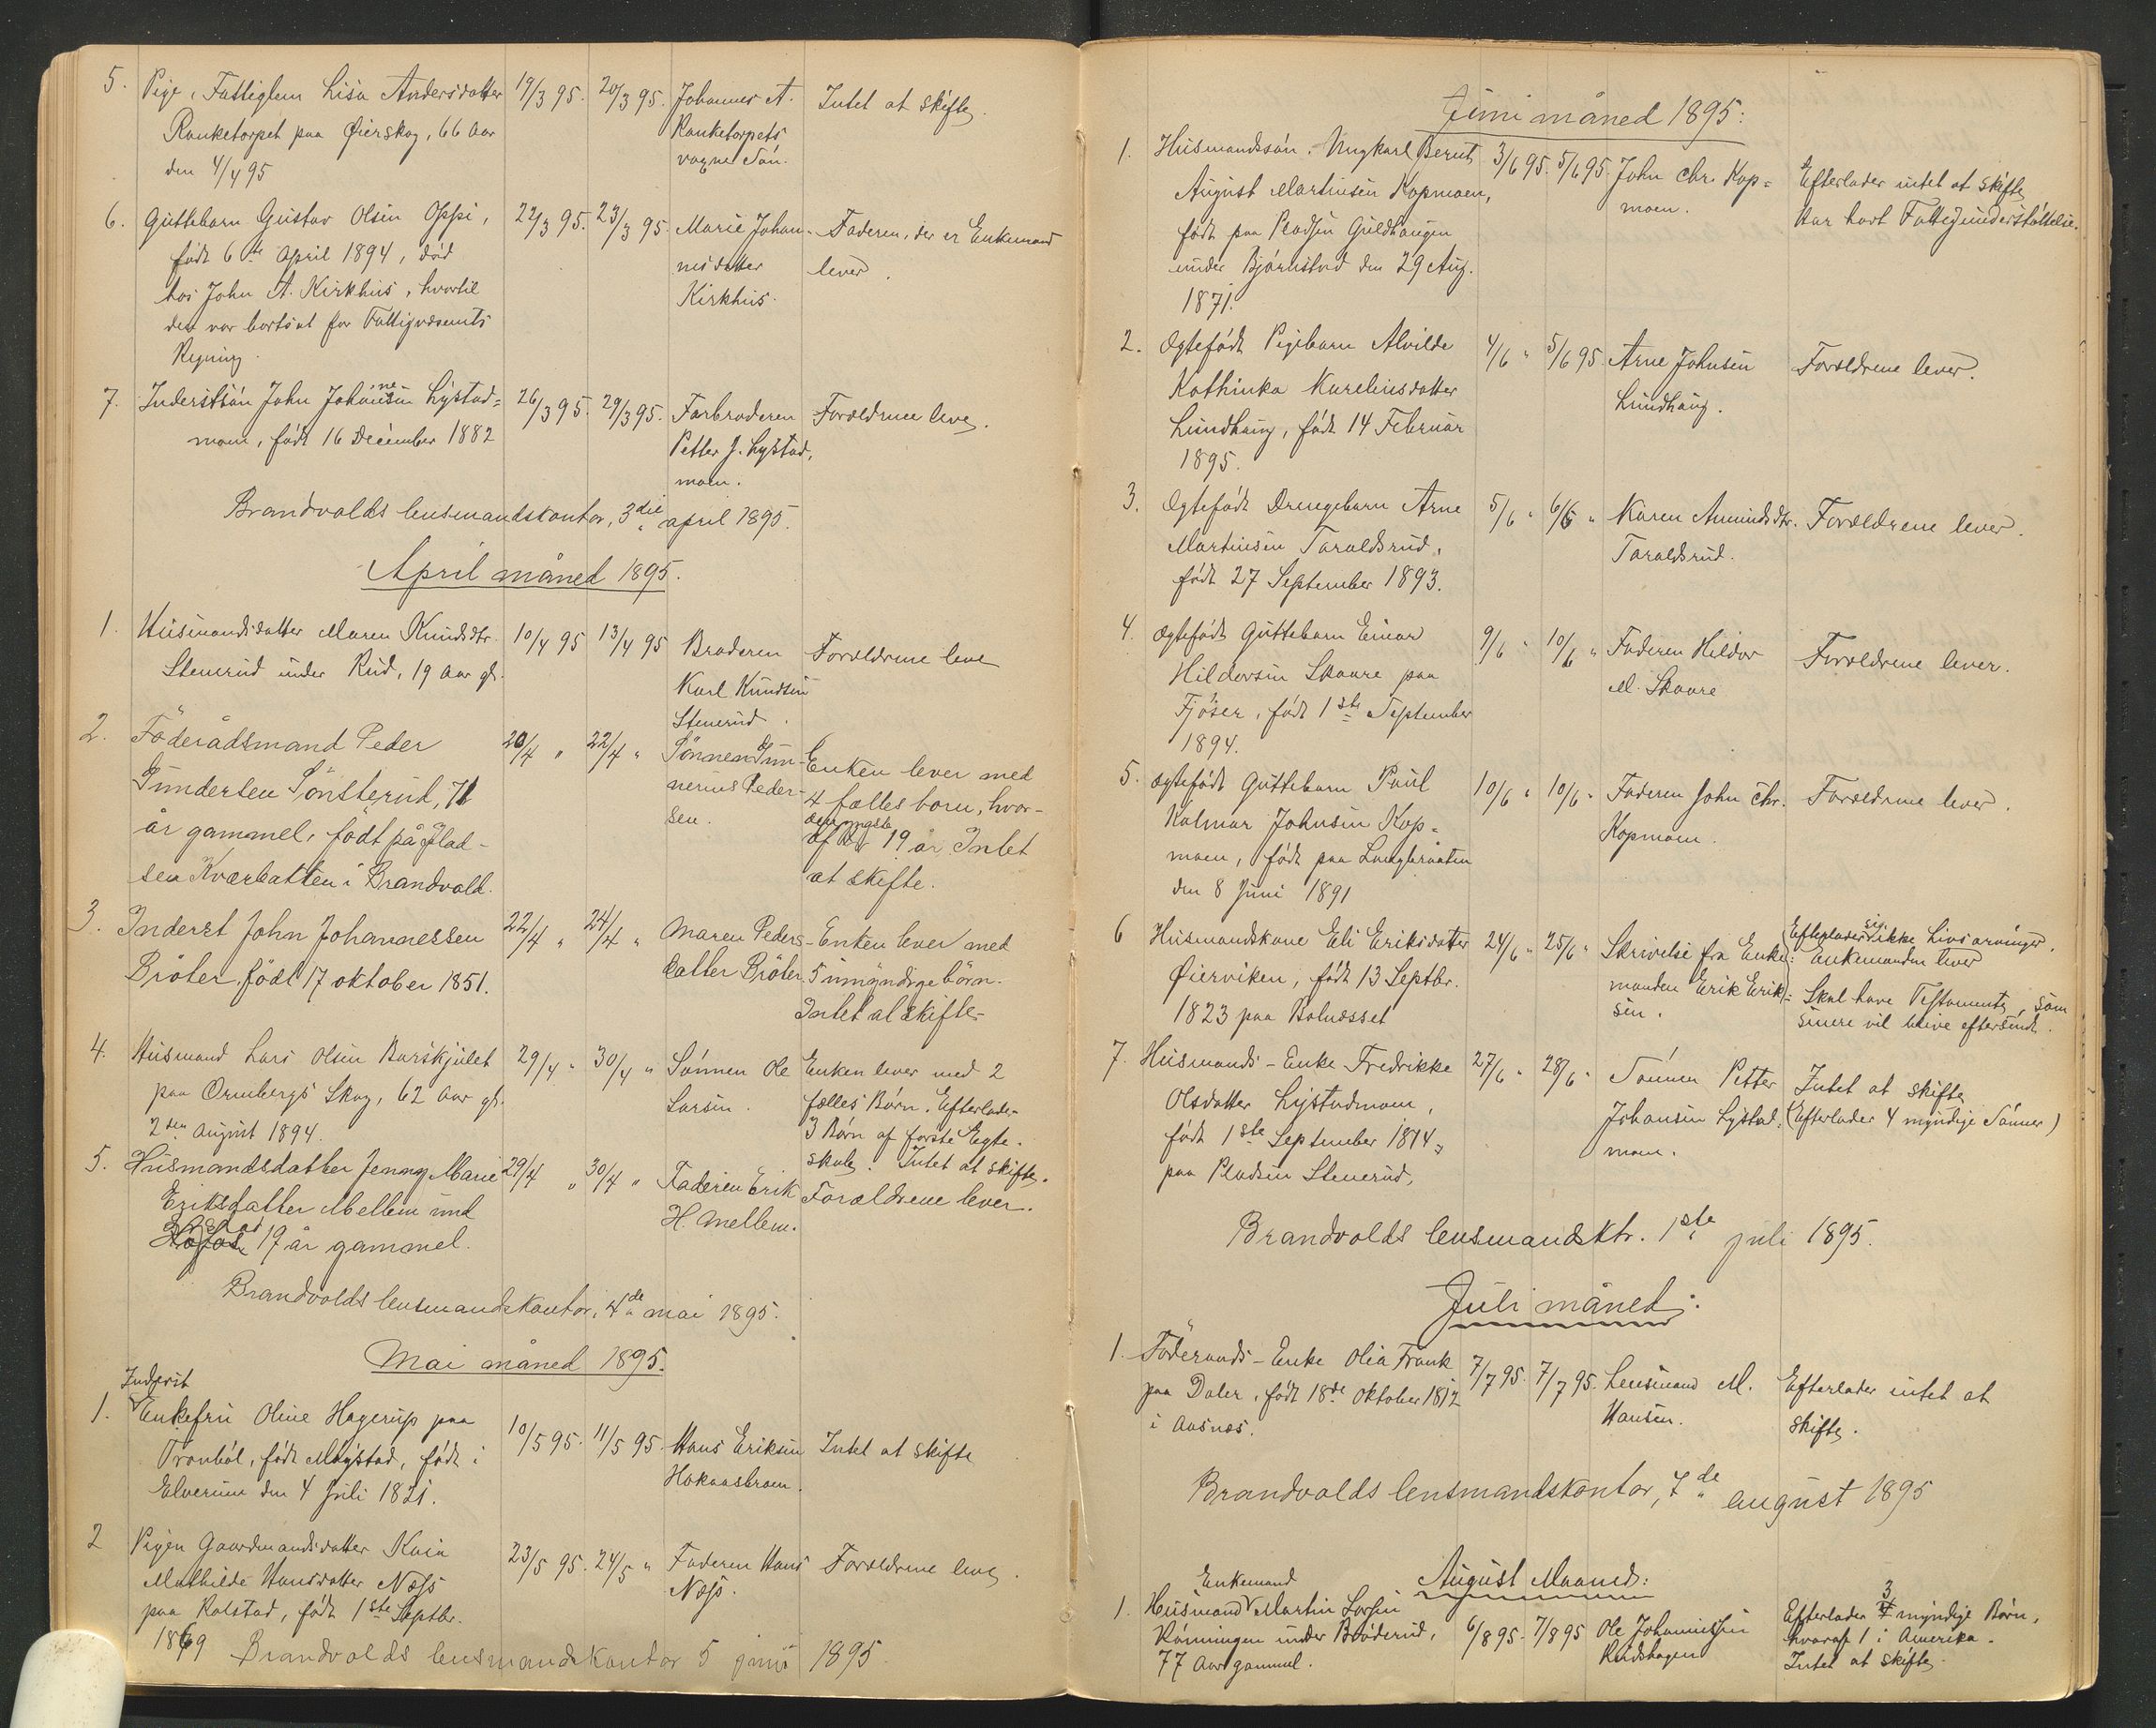 5. Pige, Fattiglem Lisa Andersdatter 19/3 95. 20/3 95. Johannes A. Intet at skifte.
Ranketorpet paa Øierskog, 66 Aar Ranketorpets
den 4/4 95 voxne Søn.
6. Guttebarn Gustav Olsen Oppi, 22/3 95. 23/3 95. Marie Johan- Faderen, der er Enkemand
født 6te April 1894, død nesdatter lever.
hos John A. Kirkhus, hvortil Kirkhus.
det var bortsat for Fattigvæsenets
Regning.
7. Inderstsøn John Johannesen Lystad= 26/3 95. 29/3 95. Farbroderen Forældrene leve.
moen, født 16 December 1882 Petter J. Lystad,
moen.
Brandvolds lensmandskontor, 3die april 1895.
April måned 1895.
1. Husmandsdatter Maren Knudsdtr. 10/4 95 13/4 95 Broderen Forældrene leve
Stenerud under Rud, 19 Aar gl. Karl Knudsen
Stenerud.
2. Föderådsmand Peder 20/4 " 22/4 " Sønnen Gun- Enken lever med
Gundersen Sönsterud, 71 nerius Peder- 4 fælles born, hvor-
år gammel, født på Plad- sen. af den yngste 19 år. Intet
sen Kværbatten i Brandvold. at skifte.
3. Inderst John Johannessen 22/4 " 24/4 " Maren Peders- Enken lever med
Bröter, född 17 oktober 1851. datter Bröter. 5 umyndige börn.
Intet at skifte-
4. Husmand Lars Olsen Barskjulet 29/4 " 30/4 " Sønnen Ole Enken lever med 2
paa Ørmbergs Skog, 62 Aar gl. Larsen. fælles Børn. Efterlader
2den August 1894. 3 Børn af første Egte-
skab. Intet at skifte.
5. Husmandsdatter Jenny Marie 29/4 " 30/4 " Faderen Erik Forældrene lever.
Eriksdatter Mellem und H. Mellem.
19 år gammel.
Brandvolds lensmandskontor, 4de mai 1895.
Mai måned 1895.
Inderst
1. Enkefru Oline Hagerup paa 10/5 95. 11/5 95. Hans Eriksen Intet at skifte
Tronbøl, født Møystad, født i Hokaasbraen.
Elverum den 4 Juli 1821.
2 Pigen Gaardmandsdatter Kaia 23/5 95. 24/5 " Faderen Hans Forældrene leve.
Mathilde Hansdatter Næss Næss.
paa Kolstad, født 1ste Septbr.
1869 Brandvolds lensmandskontor 5 juni 1895.
Juni måned 1895:
1. Husmandssøn, Ungkarl Bernt 3/6 95. 5/6 95. John Chr. Kop= Efterlader intet at skifte
August Martinsen Kopmoen, moen. Har havt Fattigunderstøttelse.
født paa Pladsen Guldhaugen
under Bjørnstad den 29 Aug.
1871.
2. Ægtefødt Pigebarn Alvilde 4/6 " 5/6 95. Arne Johnsen Forældrene lever.
Kathinka Kareliusdatter Lundhaug.
Lundhaug, født 14 Februar
1895.
3. Ægtefødt Drengebarn Arne 5/6 " 6/6 " Karen Amundsdtr. Forældrene lever.
Martinsen Taraldsrud, Taraldsrud.
født 27 September 1893.
4. Ægtefødt Guttebarn Einar 9/6 " 10/6 " Faderen Hildor Forældrene lever.
Hildorsen Skaare paa M. Skaare
Fjøser, født 1ste September
1894.
5. Ægtefødt Guttebarn Paul 10/6 " 10/6 " Faderen John Chr. Forældrene lever.
Kalmar Johnsen Kop= Kopmoen.
moen, født paa Langbraaten
den 8 Juni 1891
6 Husmandskone Eli Eriksdatter 24/6 " 25/6 " Skrivelse fra Enke= Efterlader sig ikke Livsarvinger.
Øierviken, født 13 Septbr. manden Erik Erik= Enkemanden lever
1823 paa Bolnæsset sen. Skal have Testamente, som
senere vil blive eftersendt.
7. Husmands-Enke Fredrikke 27/6 " 28/6 " Sønnen Petter Intet at skifte
Olsdatter Lystadmoen, Johansen Lystad= (Efterlader 4 myndige Sønner)
født 1ste September 1814, moen.
paa Pladsen Stenerud,
Brandvolds lensmandsktr. 1ste juli 1895.
Juli måned:
1. Föderaads-Enke Olea Frank 7/7 95. 7/7 95. Lensmand M. Efterlader intet at
paa Daler, født 18de Oktober 1812 Hansen. skifte.
i Aasnes.
Brandvolds lensmandskontor, 7de august 1895
August Maaned:
Enkemand
1. Husmand Martin Larsen 6/8 95. 7/8 95 Ole Johannessen Efterlader 3 myndige Børn,
Rønningen under Brøderud, Rudshagen hvoraf 1 i Amerika.
77 Aar gammel. Intet at skifte